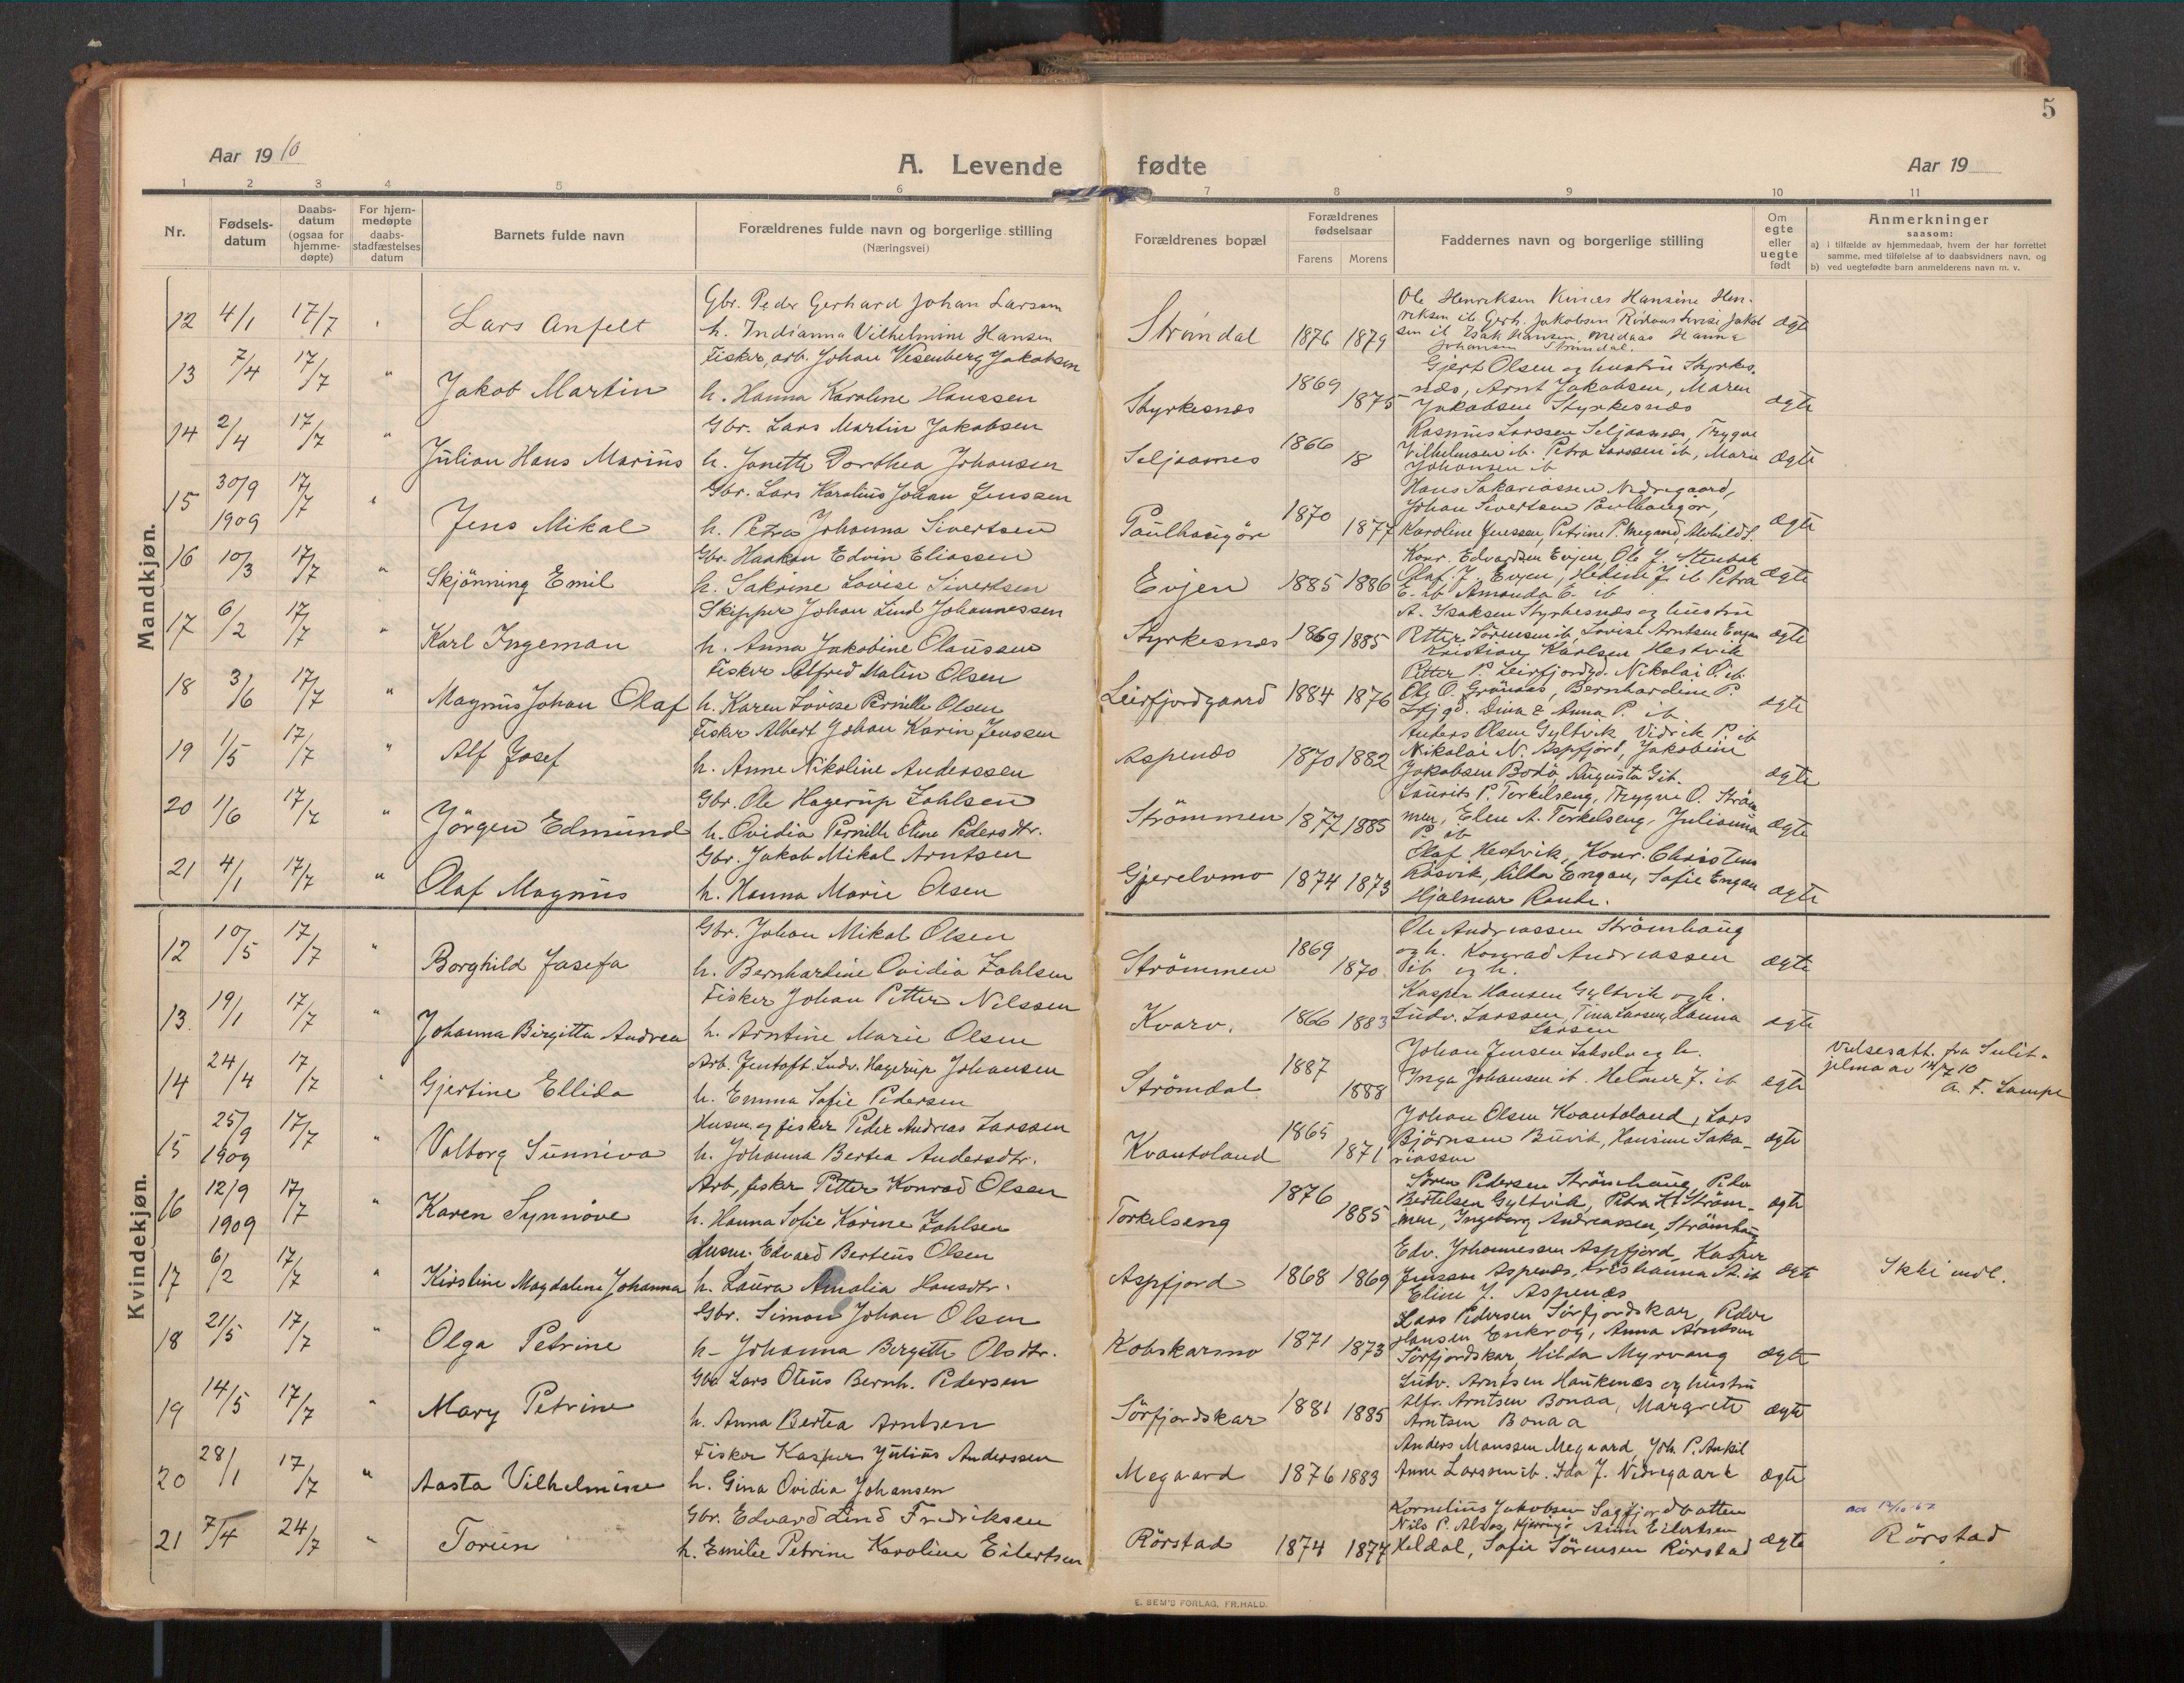 5
Aar 1910
A. Levende fødte
Aar 19
1 2 3 4 5 6 7 8 9 10 11
Nr.
Fødsels-
datum
Daabs-
datum
(ogsaa for
hjemme-
døpte)
For hjem-
medøpte
daabs-
stadfæstelses
datum
Barnets fulde navn
Forældrenes fulde navn og borgerlige stilling
(Næringsvei)
Forældrenes bopæl
Forældrenes
fødselsaar
Farens Morens
Faddernes navn og borgerlige stilling
Om
egte
eller
uegte
født
Anmerkninger
saasom:
a) i tilfælde av hjemmedaab, hvem der har forrettet
samme, med tilføielse af to daabsvidners navn, og
b) ved uegtefødte barn anmelderens navn m. v.
Mandkjøn.
12 4/1 17/7 " Lars Anfelt
Gbr. Peder Gerhard Johan Larsen
h. Indianna Vilhelmine Hansen
Strömdal 1876 1879
Ole Henriksen Kines Hansine Hen-
riksen ib Gerh. Jakobsen Lovise Jakob
sen ib Isak Hansen Hanna
Johansen Strömdal.
ægte
13 7/4 17/7 " Jakob Martin
Fisker, arb. Johan Vesenberg Jakobsen
h. Hanna Karoline Hanssen
Styrkesnes 1869 1875
Gjert Olsen og hustru Styrkes-
næs, Arnt Jakobsen, Maren
Jakobsen Styrkesnæs
ægte
14 2/4 17/7 " Julian Hans Marius
Gbr. Lars Martin Jakobsen
h. Janette Dorthea Johansen
Seljaasnes 1866 18
Rasmus Larssen Seljaasnes, Trygve
Vilhelmsen ib. Petra Larssen ib, Marie
Johansen ib
ægte
15 30/9 1909 17/7 " Jens Mikal
Gbr. Lars Karolius Johan Jenssen
h. Petra Johanna Sivertsen
Paulhaugör 1870 1877
Hans Sakariassen Nedregaard,
Johan Sivertsen Paulhaugör,
Karoline Jenssen, Petrine P. Megaard,
ægte
16 10/3 17/7 " Skjönning Emil
Gbr. Haakon Edvin Eliassen
h. Sakrine Lovise Sivertsen
Evjen 1885 1886
Konr. Edvardsen Evjen, Ole J. Stenbak
Olaf J. Evjen, J. ib Petra
E. ib Amanda E. ib
ægte
17 6/2 17/7 " Karl Ingeman
Skipper Johan Lind Johannessen
h. Anna Jakobine Olaussen
Styrkesnes 1869 1885
A. Isaksen Styrkesnæs og hustru
Petter Sörensen ib, Lovise Arntsen Engan
Kristian Karlsen Hestvik
ægte
18 3/6 17/7 " Magnus Johan Olaf
Fisker Alfred Malin Olsen
h. Karen Lovise Pernille Olsen
Leirfjordgaard 1884 1876
Petter P. Leirfjordgd. Nikolai O. ib.
Ole O. Grönaas, Bernhardine P.
Lfjgd. Dina & Anna P. ib
ægte
19 1/5 17/7 " Alf Josef
Fisker Albert Johan Karin Jenssen
h. Anne Nikoline Anderssen
Aspenes 1870 1882
Anders Olsen Gyltvik Vidrik P. ib
Nikolai N. Aspfjord, Jakobine
Jakobsen Bodö, Augusta G ib.
ægte
20 1/6 17/7 " Jörgen Edmund
Gbr. Ole Hagerup Zahlsen
h. Ovidia Pernille Eline Pedersdtr.
Strömmen 1877 1885
Laurits P. Torkelseng, Trygve O. Ström
men, Elen A. Torkelseng, Julianna
P. ib
ægte
21 4/1 17/7 " Olaf Magnus
Gbr. Jakob Mikal Arntsen
h. Hanna Marie Olsen
Gjerelvmo 1874 1873
Olaf Hestvik, Konr. Christens
Rösvik, Hilda Engan, Sofie Engan
Hjalmar
ægte
Kvindekjøn.
12 10/5 17/7 " Borghild Josefa
Gbr. Johan Mikal Olsen
h. Bernhartine Ovidia Zahlsen
Strömmen 1869 1870
Ole Andreassen Strömhaug
og h. Konrad Andreassen
ib og h.
ægte
13. 19/1 17/7 " Johanna Birgitta Andrea
Fisker Johan Petter Nilssen
h. Arntine Marie Olsen
Kvarv. 1866 1883
Kasper Hansen Gyltvik og h.
Ludv. Larssen, Tina Larsen, Hanna
Larsen
ægte
14 24/4 17/7 " Gjertine Ellida
Arb. Jentoft Ludv. Hagerup Johansen
h. Emma Sofie Pedersen
Strömdal 1887 1888
Johan Jensen og h.
Inga Johansen ib. Helmer J. ib
ægte
Vielsesatt. fra Sulit-
jelma av
A. F. Lampe
15 25/9 1909 17/7 " Valborg Sunniva
Husm. og fisker Peder Andreas Larssen
h. Johanna Bertea Andersdtr.
Kvantoland 1865 1871
Johan Olsen Kvantoland, Lars
Björnsen Buvik, Hansine Saka-
riassen
ægte
16 12/9 1909 17/7 " Karen Synnöve
Arb, fisker Petter Konrad Olsen
h. Hanna Sofie Karine Zahlsen
Torkelseng 1876 1885
Sören Pedersen Strömhaug, Peder
Bertelsen Gyltvik, Petra H. Ström-
men, Ingeborg Andreassen, Strömhaug
ægte
17 6/2 17/7 " Kirstine Magdalene Johanna
Husm. Edvard Berteus Olsen
h. Laura Amalia Hansdtr.
Aspfjord 1868 1869
Edv. Johannessen Aspfjord, Kasper
Jenssen Aspenes, Kristianna A. ib
Eline J. Aspenæs
ægte
Ikke indl.
18 21/5 17/7 " Olga Petrine
Gbr. Simon Johan Olsen
h. Johanna Bergitte Olsdtr.
Kobskarsmo 1871 1873
Lars Pedersen Sörfjordskar, Peder
Hansen Enkrog, Anna Arntsen
Sörfjordskar, Hilda Myrvang
ægte
19 14/5 17/7 " Mary Petrine
Gbr Lars Oteus Bernh. Pedersen
h. Anna Bertea Arntsen
Sörfjordskar 1881 1885
Ludv. Arntsen Haukenæs og hustru
Alfr. Arntsen Bonaa, Margrete
Arntsen Bonaa
ægte
20 28/1 17/7 " Aasta Vilhelmine
Fisker Kasper Julius Anderssen
h. Gina Ovidia Johansen
Megaard 1876 1883
Anders Monssen Megaard, Joh. P.
Anne Larssen ib. Ida J. Nedregaard
ægte
21 7/4 24/7 " Torun
Gbr. Edvard Lind Fredriksen
h. Emilie Petrine Karoline Eilertsen
Rörstad 1874 1877
Kornelius Jakobsen Sagfjordvatten
Nils P. Kjerringö Anne Eilertsen
Heldal, Sofie Sörensen Rörstad
ægte
Rörstad
E. SEM'S FORLAG, FR.HALD.